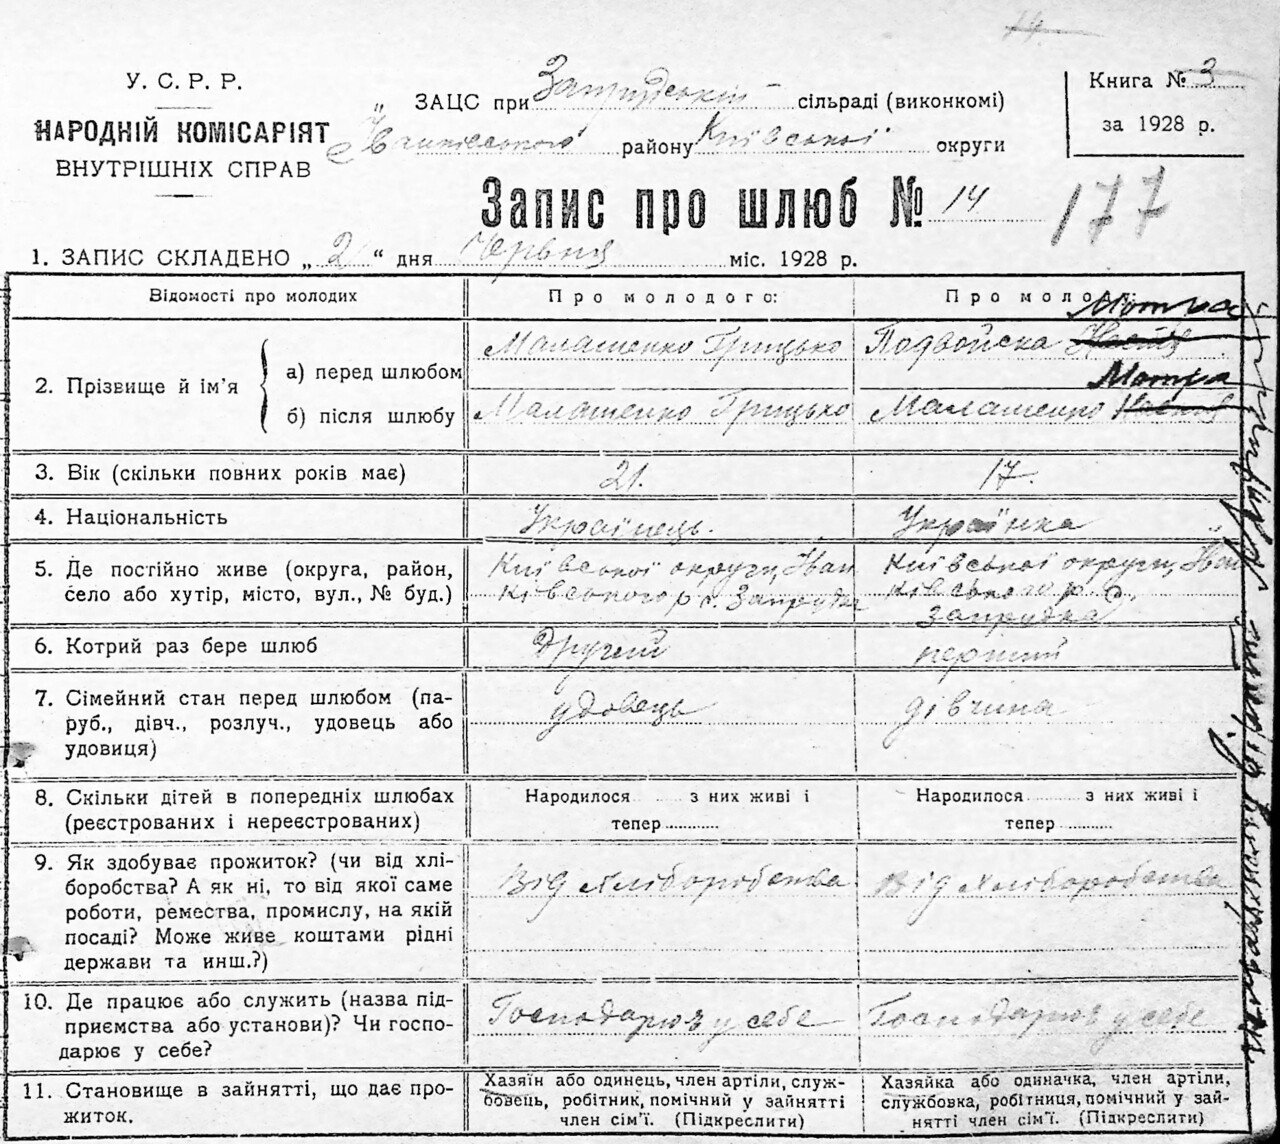 14
У. С. Р. Р.
НАРОДНІЙ КОМІСАРІЯТ
ВНУТРІШНІХ СПРАВ
„ ЗАЦС при Запрудській сільраді (виконкомі)
Іванківського району Київської округи
Книга № 3
за 1928 р.
Запис про шлюб № 14
177
1. ЗАПИС СКЛАДЕНО „ 2 “ дня Червня міс. 1928 р.
Відомості про молодих
Про молодого:
Про молоду:
2. Прізвище й ім’я
а) перед шлюбом
Малашенко Грицько
Подвойська Настя Мотря
б) після шлюбу
Малашенко Грицько
Малашенко Настя Мотря
3. Вік (скільки повних років має)
21.
17.
4. Національність
Українець.
Українка
5. Де постійно живе (округа, район,
село або хутір, місто, вул., № буд.)
Київської округи, Іван
ківського р с. Запрудка
Київської округи, Іван
ківського р. с.
Запрудка
6. Котрий раз бере шлюб
Другий
перший
7. Сімейний стан перед шлюбом (па-
руб., дівч., розлуч., удовець або
удовиця)
удовець
дівчина
8. Скільки дітей в попередніх шлюбах
(реєстрованих і нереєстрованих)
Народилося з них живі і
тепер
Народилося з них живі і
тепер
9. Як здобуває прожиток? (чи від хлі-
боробства? А як ні, то від якої саме
роботи, ремества, промислу, на якій
посаді? Може живе коштами рідні
держави та инш.?)
Від хліборобства
Від хліборобства
10. Де працює або служить (назва під-
приємства або установи)? Чи госпо-
дарює у себе?
Господарює у себе
Господарює у себе
11. Становище в зайнятті, що дає про-
житок.
Хазяїн або одинець, член артіли, служ-
бовець, робітник, помічний у зайнятті
член сім’ї. (Підкреслити)
Хазяйка або одиначка, член артіли,
службовка, робітниця, помічний у зай-
нятті член сім’ї. (Підкреслити)